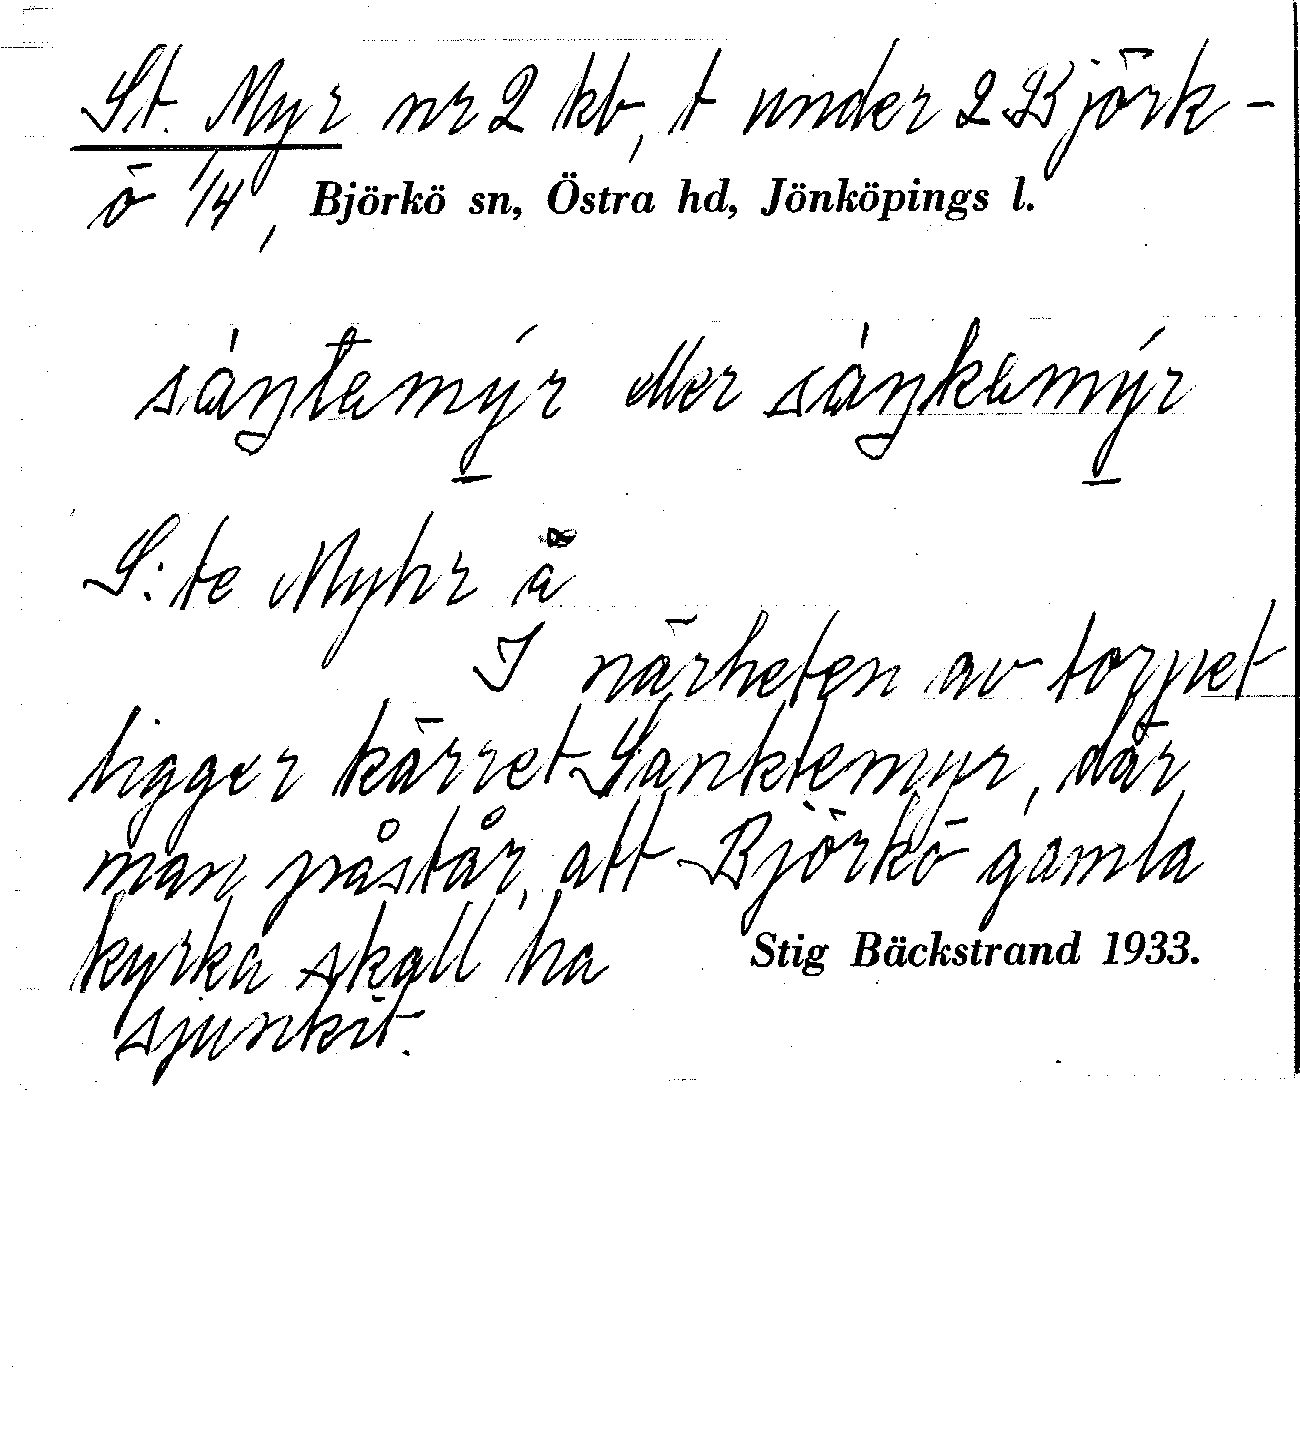 St. Myr nr 2 kb, t under 2 Björk-
ö 1/4, Björkö sn, Östra hd, Jönköpings l.
sáŋtemýr eller sáŋkemýr
S:te Myhr å
I närheten av torpet
ligger kärret Sanktemyr, där
man påstår, att Björkö gamla
kyrka skall ha
Stig Bäckstrand 1933.
sjunkit.